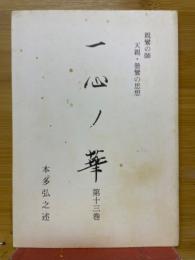 親鸞の師
天親・曇鸞の思想
一心ノ華
第十三巻
本多弘之述